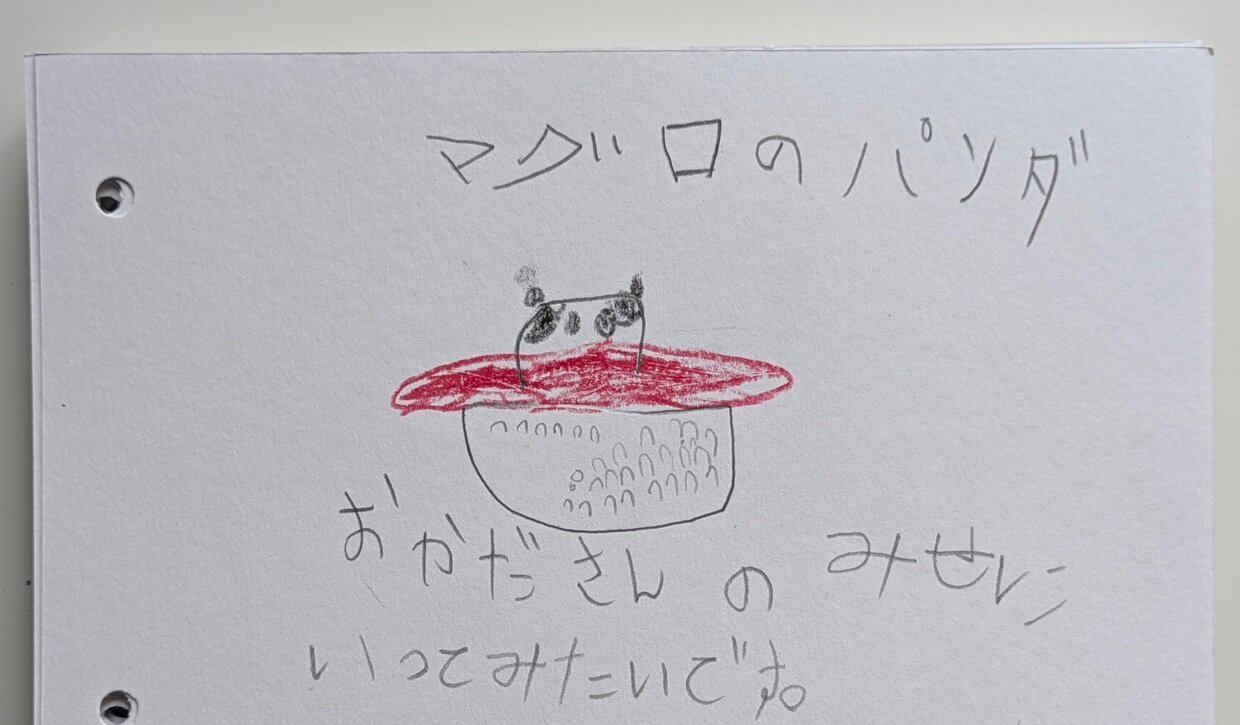 マグロのパンダ
おかださんの みせに
いってみたいです。